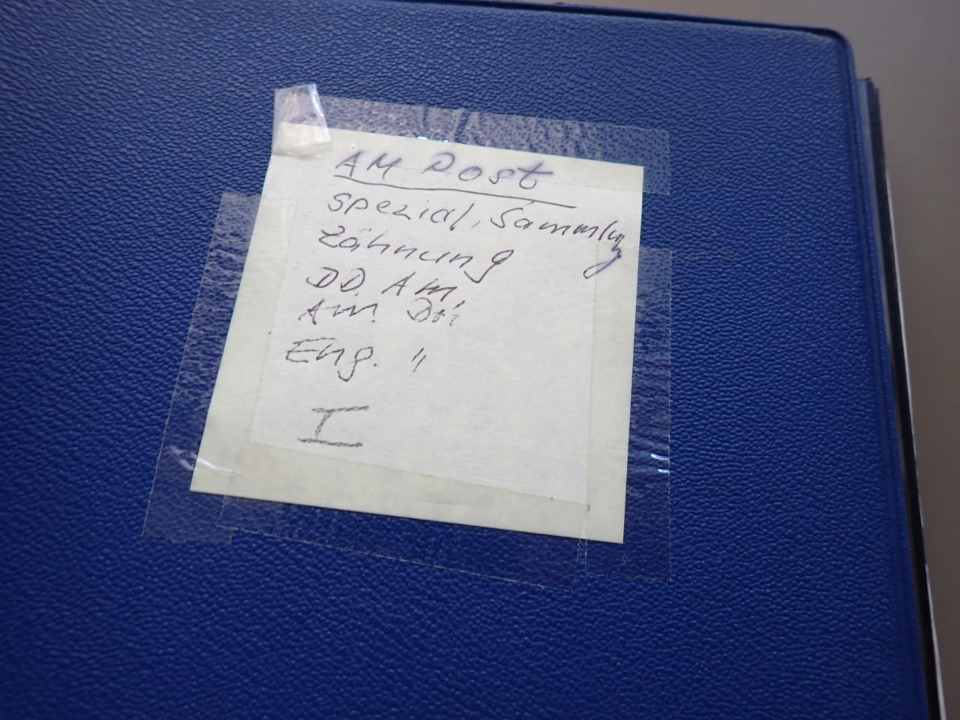 AM Post
Spezial, Sammlg
Zähnung
DD. Am.
Am. Dr.
Eng. "
I